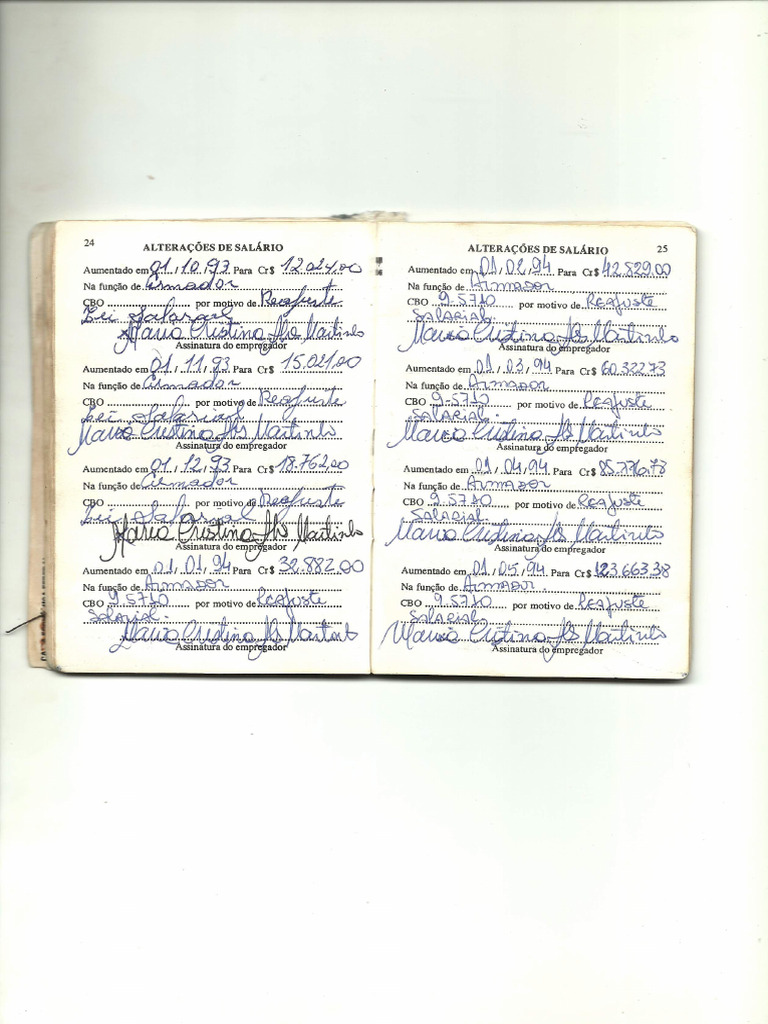 24
ALTERAÇÕES DE SALÁRIO
Aumentado em 01, 10, 93 Para Cr$ 12.024,00
Na função de Armador
CBO por motivo de Reajuste
Lei Salarial
Maria Cristina Martinho
Assinatura do empregador
Aumentado em 01, 11, 93 Para Cr$ 15.021,00
Na função de Armador
CBO por motivo de Reajuste
Lei Salarial
Maria Cristina Martinho
Assinatura do empregador
Aumentado em 01, 12, 93 Para Cr$ 18.762,00
Na função de Armador
CBO por motivo de Reajuste
Lei Salarial
Maria Cristina Martinho
Assinatura do empregador
Aumentado em 01, 01, 94 Para Cr$ 32.882,00
Na função de Armador
CBO 9-5710 por motivo de Reajuste
Salarial.
Maria Cristina Martinho
Assinatura do empregador
25
ALTERAÇÕES DE SALÁRIO
Aumentado em 01, 02, 94 Para Cr$ 42.829,00
Na função de Armador
CBO 9-5710 por motivo de Reajuste
Salarial.
Maria Cristina Martinho
Assinatura do empregador
Aumentado em 01, 03, 94 Para Cr$ 60.322,73
Na função de Armador
CBO 9-5710 por motivo de Reajuste
Salarial.
Maria Cristina Martinho
Assinatura do empregador
Aumentado em 01, 04, 94 Para Cr$
Na função de Armador
CBO 9-5710 por motivo de Reajuste
Salarial
Maria Cristina Martinho
Assinatura do empregador
Aumentado em 01, 05, 94 Para Cr$ 123.663,38
Na função de Armador.
CBO 9-5710 por motivo de Reajuste
Salarial
Maria Cristina Martinho
Assinatura do empregador